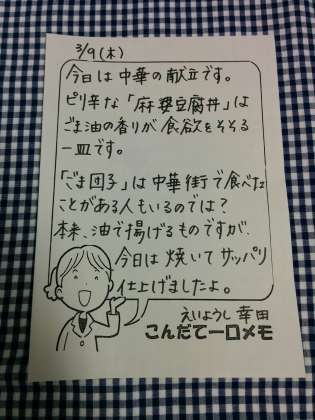 3/9(木)
今日は中華の献立です。
ピリ辛な「麻婆豆腐丼」は
ごま油の香りが食欲をそそる
一皿です。
「ごま団子」は中華街で食べた
ことがある人もいるのでは？
本来、油で揚げるものですが、
今日は焼いてサッパリ
仕上げましたよ。
えいようし 幸田
こんだて一口メモ